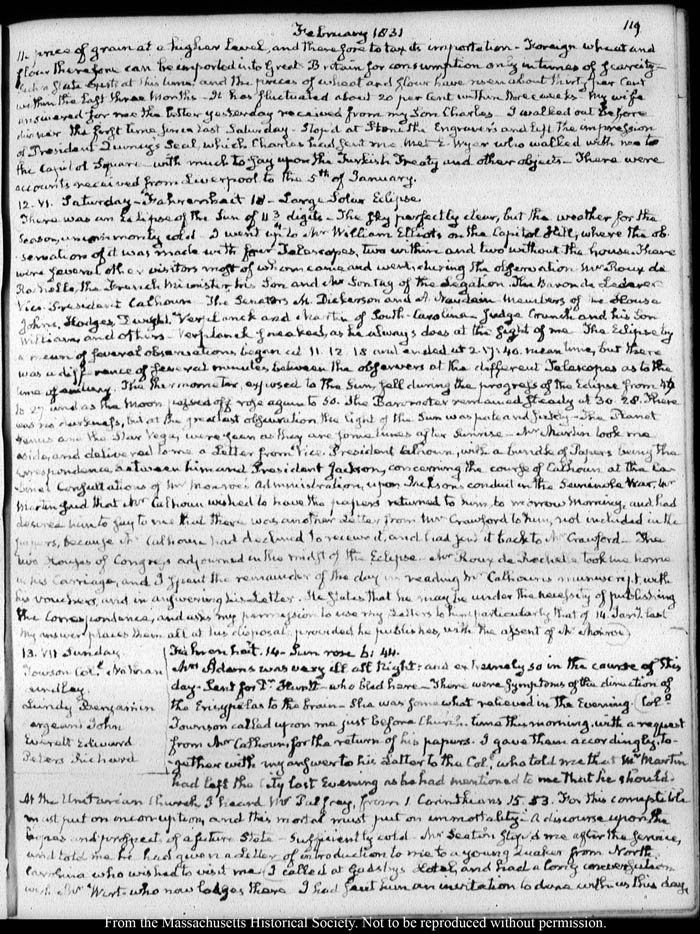 February 1831
119
11. price of grain at a higher level, and therefore to tax its importation - Foreign wheat and
flour therefore can be imported into Great Britain for consumption only in times of scarcity -
Such a State exists at this time and the prices of wheat and flour have risen about thirty per Cent
within the last three months - It has fluctuated about 20 per cent within three weeks - My wife
answered for me the letter yesterday received from my Son Charles - I walked out before
dinner the first time since last Saturday - Stop'd at Stone the Engraver's and left the impression
of President Quincy's Seal, which Charles had sent me. Met E. Wyer who walked with me to
the Capitol Square - with much to say upon the Turkish Treaty and other objects - There were
accounts received from Liverpool to the 5th of January.
12. VI. Saturday - Fahrenheit 18 - Large Solar Eclipse
There was an Eclipse of the Sun of 11 3 digits - The sky perfectly clear, but the weather for the
Season, uncommonly cold. I went up to Mr William Elliot's on the Capitol Hill, where the ob-
servation of it was made with four Telescopes, two within and two without the house. There
were several other visitors most of whom came and went during the observation Mr Roux de
Rochelle, the French Minister, his Son and Mr Sontag of the Legation. The Baron de Lederer
Vice-President Calhoun - The Senators M. Dickerson and A. Naudain Members of the House
Johns, Hodges, Dwight, Verplanck and Martin of South-Carolina - Judge Cranch and his Son
William, and others - Verplanck sneaked, as he always does at the sight of me. The Eclipse by
a mean of several observations began at 11. 12. 18 and ended at 2. 57. 40. mean time, but there
was a difference of several minutes between the observers at the different Telescopes as to the
time of ending. The thermometer, exposed to the Sun, fell during the progress of the Eclipse from
to 27 and as the Moon passed off rose again to 50. The Barometer remained steady at 30. 28. There
was no darkness, but at the greatest obscuration the light of the Sun was pale and sickly - The Planet
Venus and the Star Vega, were seen as they are sometimes after Sunrise - Mr Martin took me
aside, and delivered to me a Letter from Vice-President Calhoun, with a bundle of Papers being the
Correspondence between him and President Jackson, concerning the course of Calhoun at the Ca-
binet Consultations of Mr Monroe's Administration, upon Jackson's conduct in the Seminole War. Mr
Martin said that Mr Calhoun wished to have the papers returned to him, to-morrow Morning, and had
desired him to say to me that there was another Letter from Mr Crawford to him, not included in the
papers, because Mr Calhoun had declined to receive it, and had sent it back to Mr Crawford - The
two Houses of Congress adjourned in the midst of the Eclipse - Mr Roux de Rochelle took me home
in his Carriage, and I spent the remainder of the day in reading Mr Calhoun's manuscript, with
his vouchers, and in answering his Letter. He states that he may be under the necessity of publishing
the Correspondence, and asks my permission to use my Letters to him particularly that of 14 Jany last
My answer places them all at his disposal, provided he publishes with the assent of Mr Monroe.
13. VII Sunday.
Towson Col. Nathan
Lindley
Lundy Benjamin
Sergeant John
Everett Edward
Peters Richard
Fahrenheit. 14 - Sun rose 6: 44.
Mrs Adams was very ill all Night: and extremely so in the course of this
day. Sent for Dr Huntt - who bled here - There were Symptoms of the direction of
the Erisypelas to the brain - She was somewhat relieved in the Evening. Col.
Townson called upon me just before Church-time this morning, with a request
from Mr Calhoun for the return of his papers. I gave them accordingly, to-
gether with my answer to his Letter to the Col. who told me that Mr Martin
had left the City last Evening as he had mentioned to me that he should.
At the Unitarian Church I heard Mr Palfrey, from 1 Corinthians 15. 53. For this corruptible
must put on incorruption, and this mortal must put on immortality - A discourse upon the
hopes and prospects of a future State - Sufficiently cold - Mr Seaton stop'd me after the service,
and told me he had given a Letter of introduction to me to a young Quaker from North
Carolina who wished to visit me. I called at Gadsby's Hotel, and had a long conversation
with Mr Wirt who now lodges there - I had sent him an invitation to dine with us this day
From the Massachusetts Historical Society. Not to be reproduced without permission.